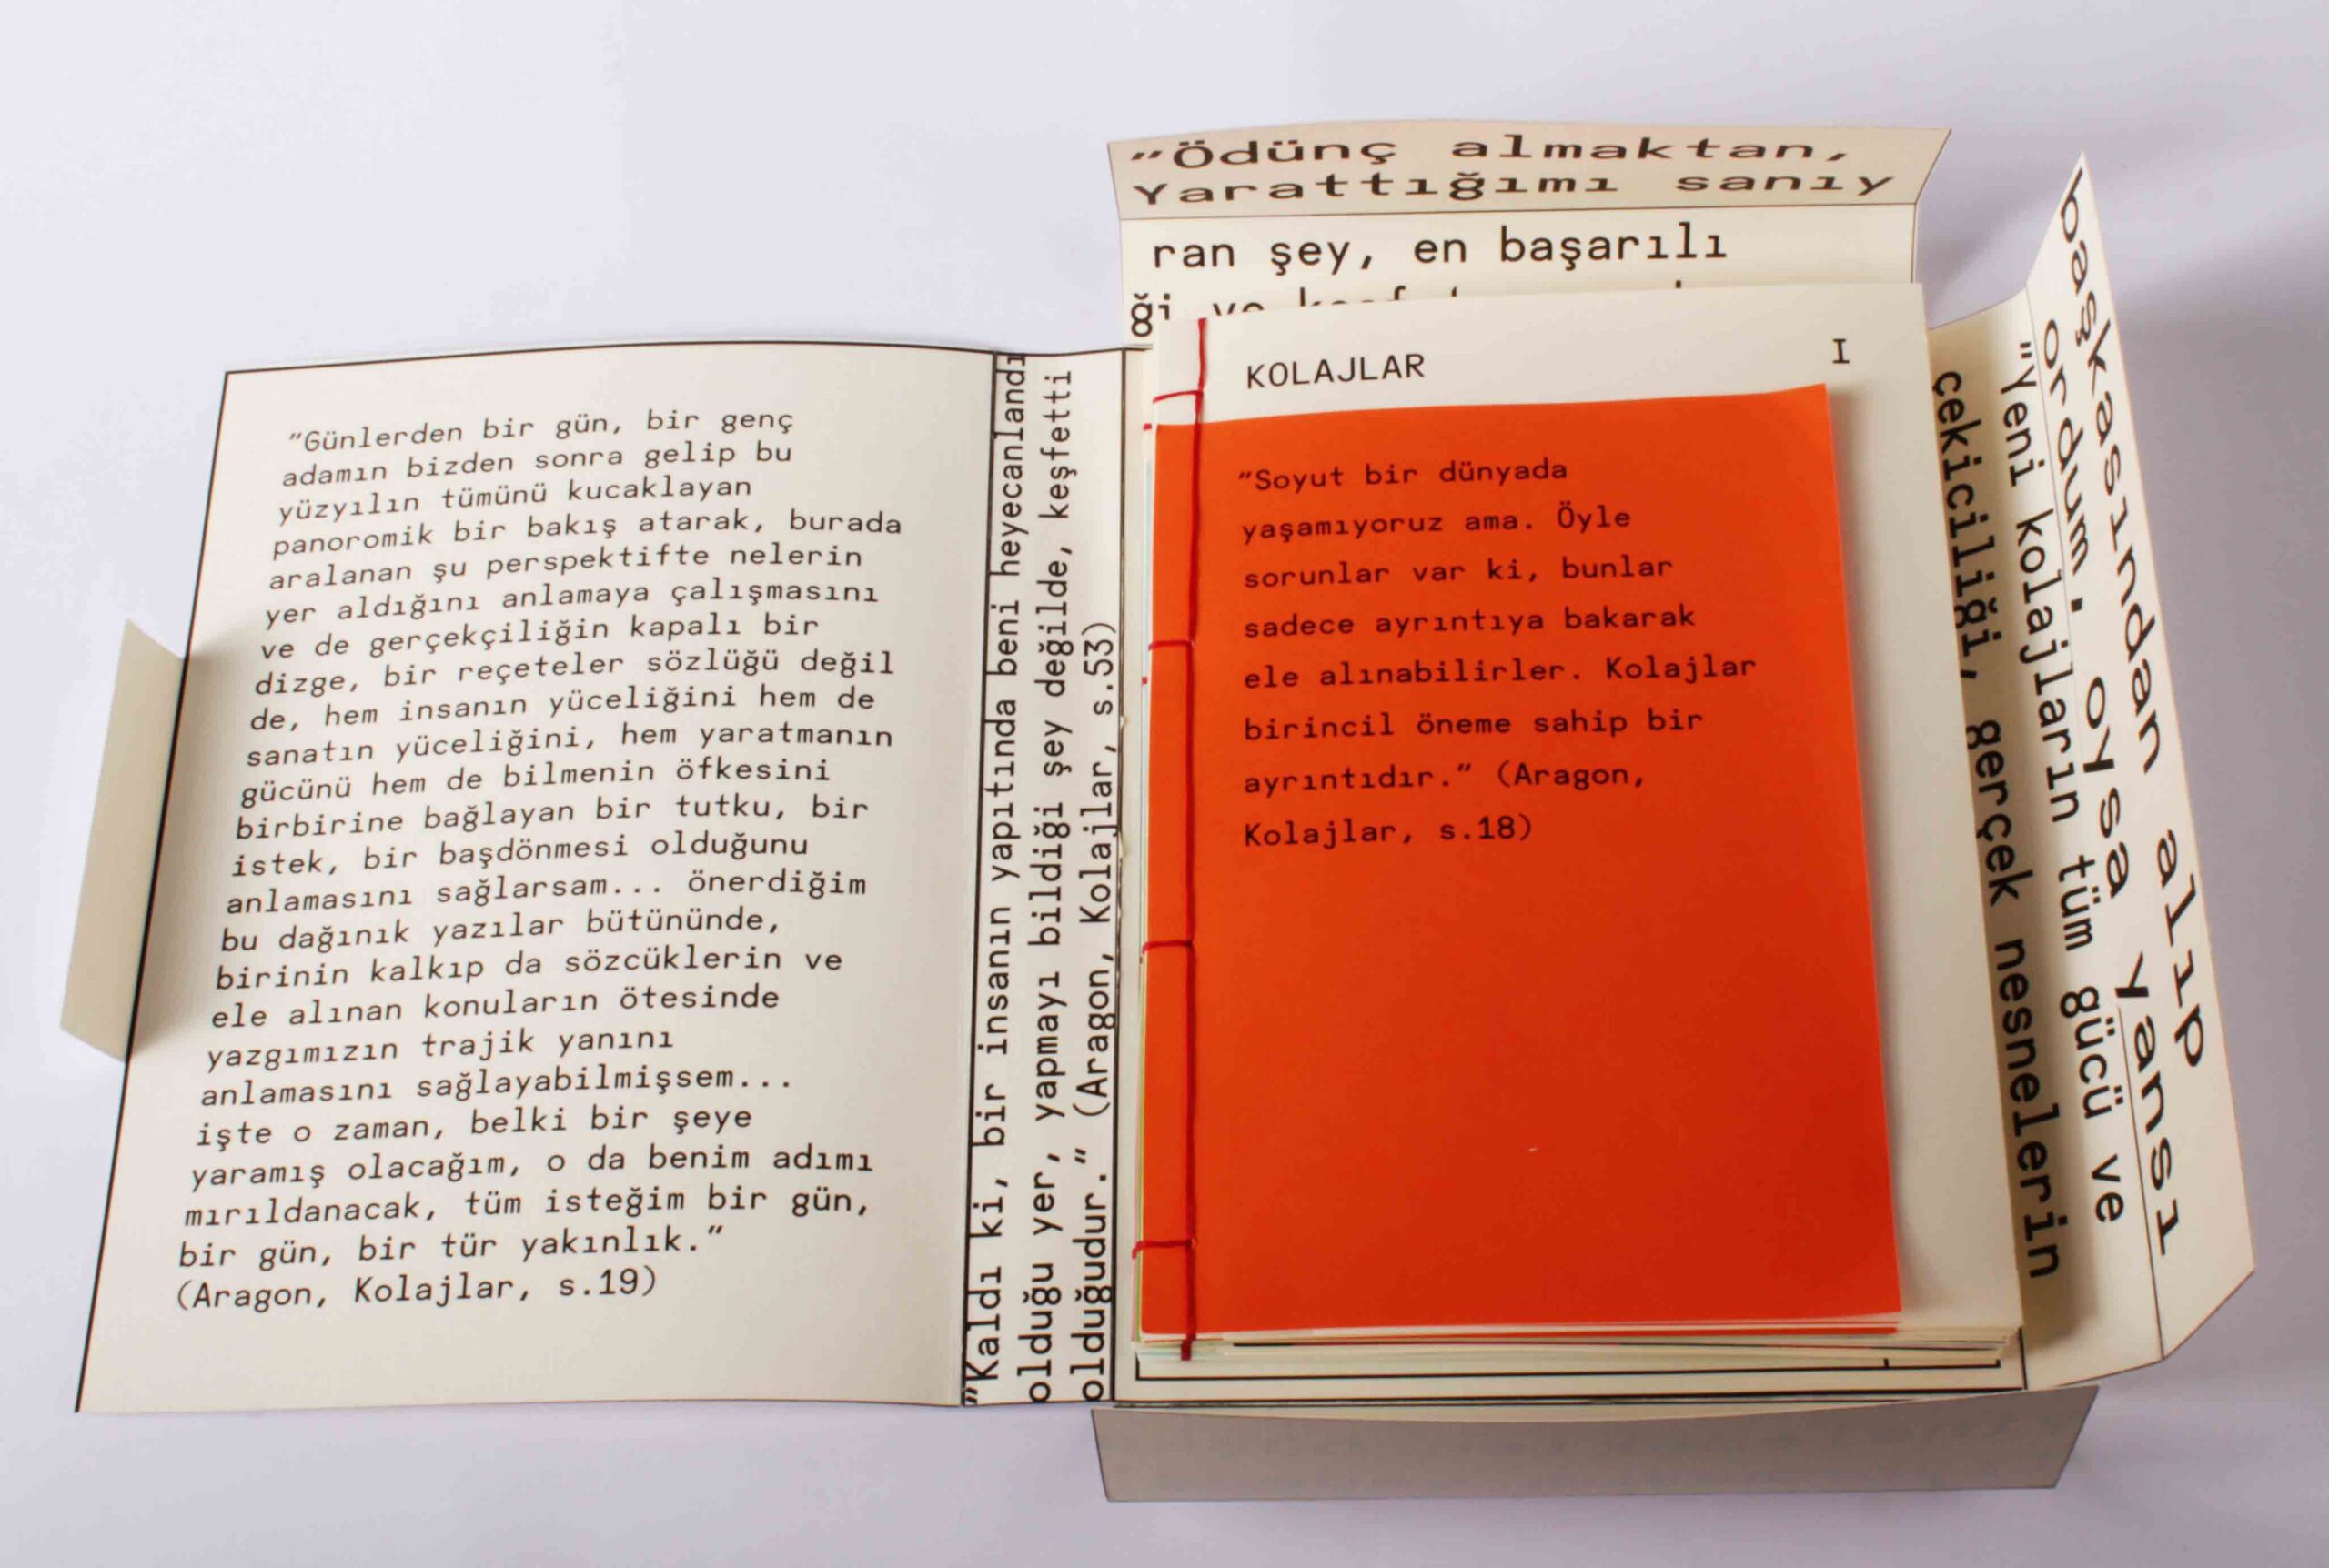 "Günlerden bir gün, bir genç
adamın bizden sonra gelip bu
yüzyılın tümünü kucaklayan
panoromik bir bakış atarak, burada
aralanan şu perspektifte nelerin
yer aldığını anlamaya çalışmasını
ve de gerçekçiliğin kapalı bir
dizge, bir reçeteler sözlüğü değil
de, hem insanın yüceliğini hem de
sanatın yüceliğini, hem yaratmanın
gücünü hem de bilmenin öfkesini
birbirine bağlayan bir tutku, bir
istek, bir başdönmesi olduğunu
anlamasını sağlarsam... önerdiğim
bu dağınık yazılar bütününde,
birinin kalkıp da sözcüklerin ve
ele alınan konuların ötesinde
yazgımızın trajik yanını
anlamasını sağlayabilmişsem...
işte o zaman, belki bir şeye
yaramış olacağım, o da benim adımı
mırıldanacak, tüm isteğim bir gün,
bir gün, bir tür yakınlık."
(Aragon, Kolajlar, s.19)
"Kaldı ki, bir insanın yapıtında beni heyecanlandı
olduğu yer, yapmayı bildiği şey değilde, keşfetti
olduğudur." (Aragon, Kolajlar, s.53)
"Ödünç almaktan,
Yarattığımı sanıy
ran şey, en başarılı
ği ve
KOLAJLAR I
"Soyut bir dünyada
yaşamıyoruz ama. Öyle
sorunlar var ki, bunlar
sadece ayrıntıya bakarak
ele alınabilirler. Kolajlar
birincil öneme sahip bir
ayrıntıdır." (Aragon,
Kolajlar, s.18)
başkasından alıp
ordum. oysa yansı
"Yeni kolajların tüm gücü ve
çekiciliği, gerçek nesnelerin